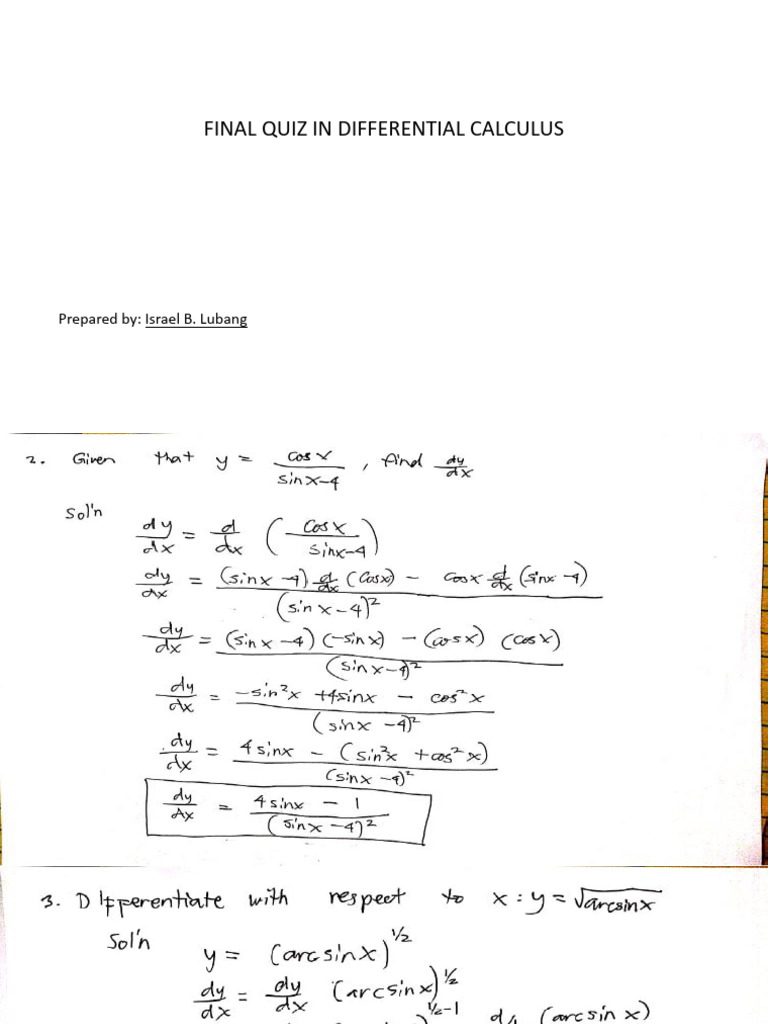 FINAL QUIZ IN DIFFERENTIAL CALCULUS
Prepared by: Israel B. Lubang
2. Given that y = cos x / (sin x - 4) , find dy/dx
Sol'n
dy/dx = d/dx (cos x / (sin x - 4))
dy/dx = ((sin x - 4) d/dx (cos x) - cos x d/dx (sin x - 4)) / (sin x - 4)²
dy/dx = ((sin x - 4) (-sin x) - (cos x) (cos x)) / (sin x - 4)²
dy/dx = (-sin²x + 4sin x - cos²x) / (sin x - 4)²
dy/dx = (4 sin x - (sin²x + cos²x)) / (sin x - 4)²
dy/dx = (4 sin x - 1) / (sin x - 4)²
3. Differentiate with respect to x : y = √arcsin x
Sol'n
y = (arcsin x)^1/2
dy/dx = dy/dx (arcsin x)^1/2
1/2-1 (arcsin x)